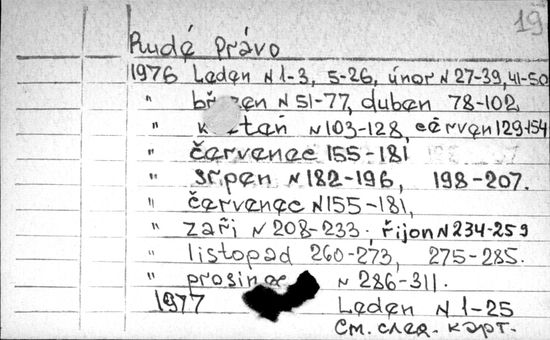 19
Rudé Právo
1976 Leden N 1-3, 5-26, únor N 27-39, 41-50
" N 51-77, duben 78-102
" N 103-128, červen 129-154
" červenec 155-181
" srpen N 182-196, 198-207.
" červenec N 155-181,
" zaři N 208-233. řijon N 234-259
" listopad 260-273, 275-285.
" N 286-311.
1977 Leden N 1-25
См. след. карт.